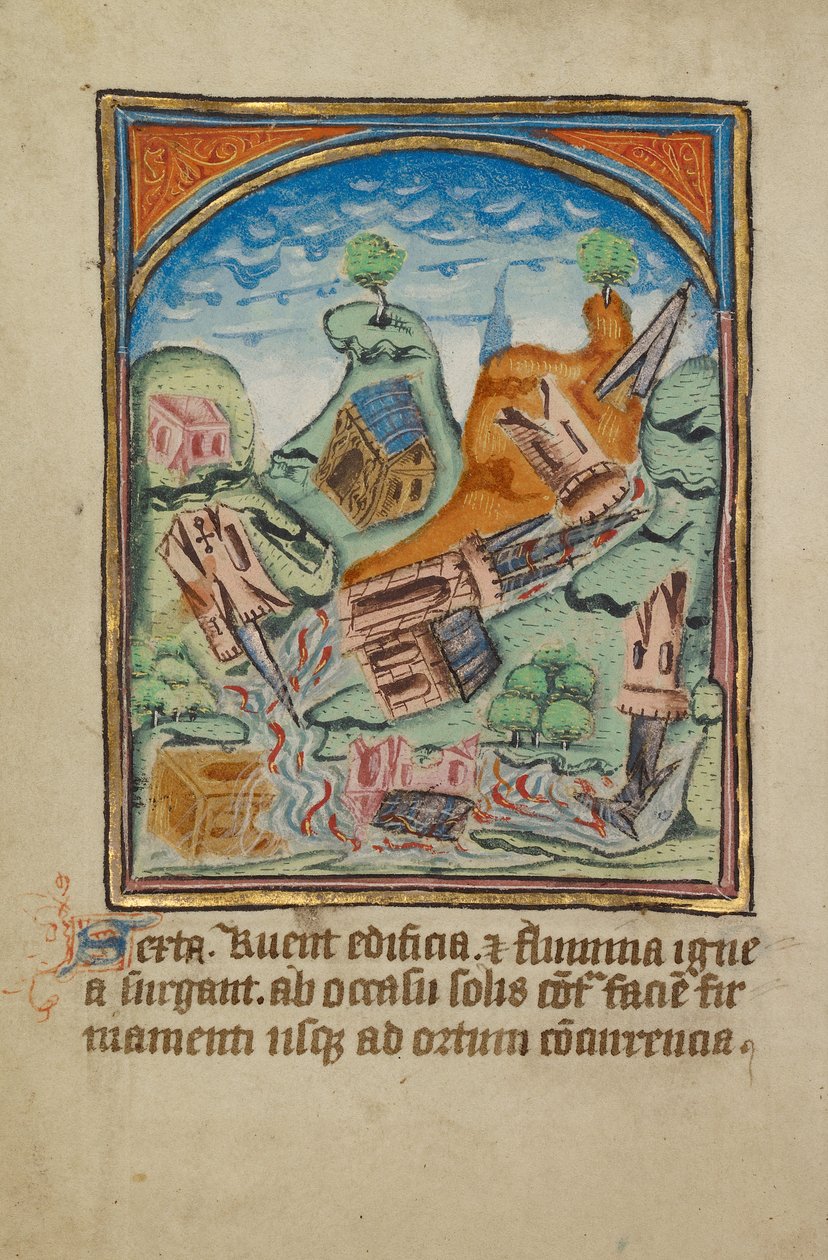 Sexta. Ruent edificia. ⁊ flumina igne
a surgant. ab occasu solis cōtᵃ faciē fir
mamenti usqꝫ ad ortum cōcurrencia.